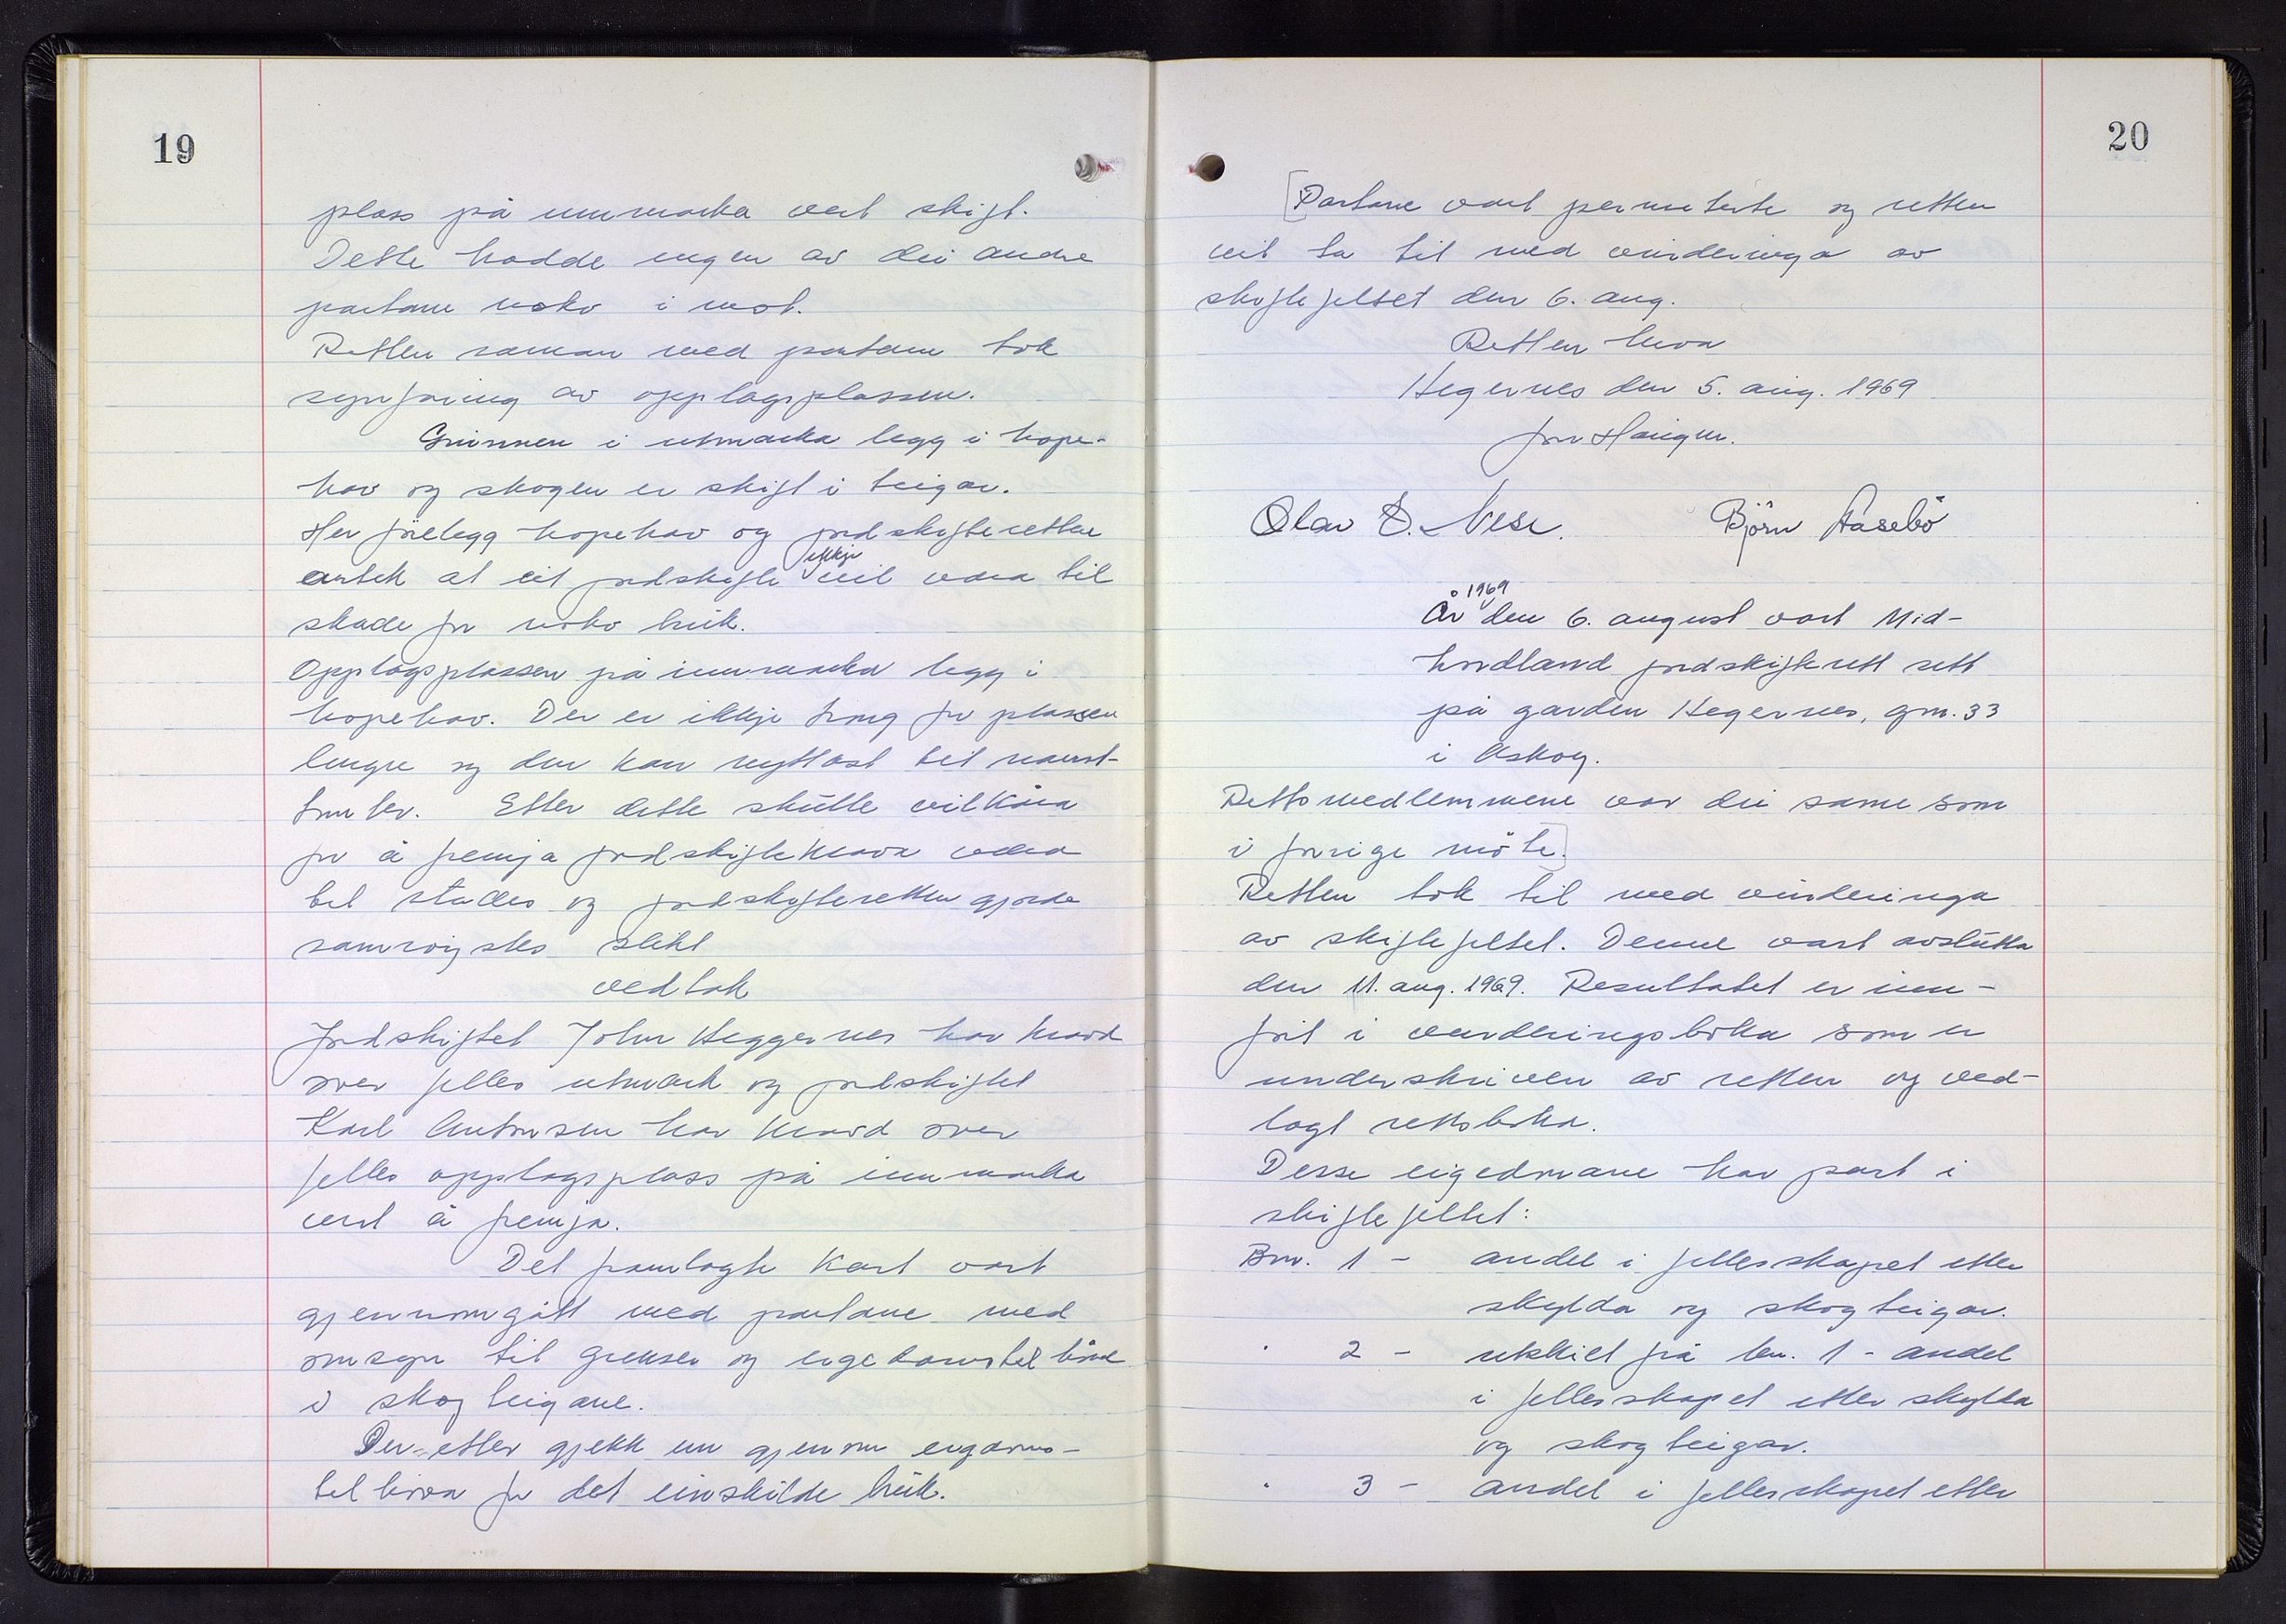 19
plass på innmarka vert skift.
Dette hadde ingen av dei andre
partane noko i mot.
Retten saman med partane tok
synfaring av opplagsplassen.
Grunnen i utmarka legg i hope-
hav og skogen er skift i teigar.
Her fyrelegg hopehav og jordskifteretten
antek at eit jordskifte ikkje vil vera til
skade for noko bruk.
Opplagsplassen på innmarka legg i
hopehav. Der er ikkje trong for plassen
lengre og den kan nyttast til naust-
tomter. Etter dette skulle vilkåra
for å fremja jordskiftekrava vera
til stades og jordskifteretten gjorde
samrøystes slikt
vedtak
Jordskiftet John Heggernes har kravd
over felles utmark og jordskiftet
Karl Antonsen har kravd over
felles opplagsplass på innmarka
vert å fremja.
Det framlagte kart vart
gjennomgått med partane med
omsyn til grenser og eigedomstilhöve
i skogteigane.
Der etter gjekk en gjenom eigdoms-
tilhöva for det einskilde bruk.
20
[Partane vart permiterte og retten
vil ta til med vurderinga av
skiftefeltet den 6. aug.
Retten heva
Hegernes den 5. aug. 1969
Jon Haugen.
Olav E. Nese. Björn Åsebö
År 1969 den 6. august vart Mid-
hordland jordskifterett sett
på garden Hegernes, gnr. 33
i Askøy.
Rettsmedlemmene var dei same som
i forrige möte.]
Retten tok til med vurderinga
av skiftefeltet. Denne vart avslutta
den 11. aug. 1969. Resultatet er inn-
fört i vurderingsboka som er
underskriven av retten og ved-
lagt rettsboka.
Desse eigedomane har part i
skiftefeltet:
Bnr. 1 - andel i fellesskapet etter
skylda og skogteigar.
" 2 - utskilt frå bnr. 1 - andel
i fellesskapet etter skylda
og skogteigar.
" 3 - andel i fellesskapet etter